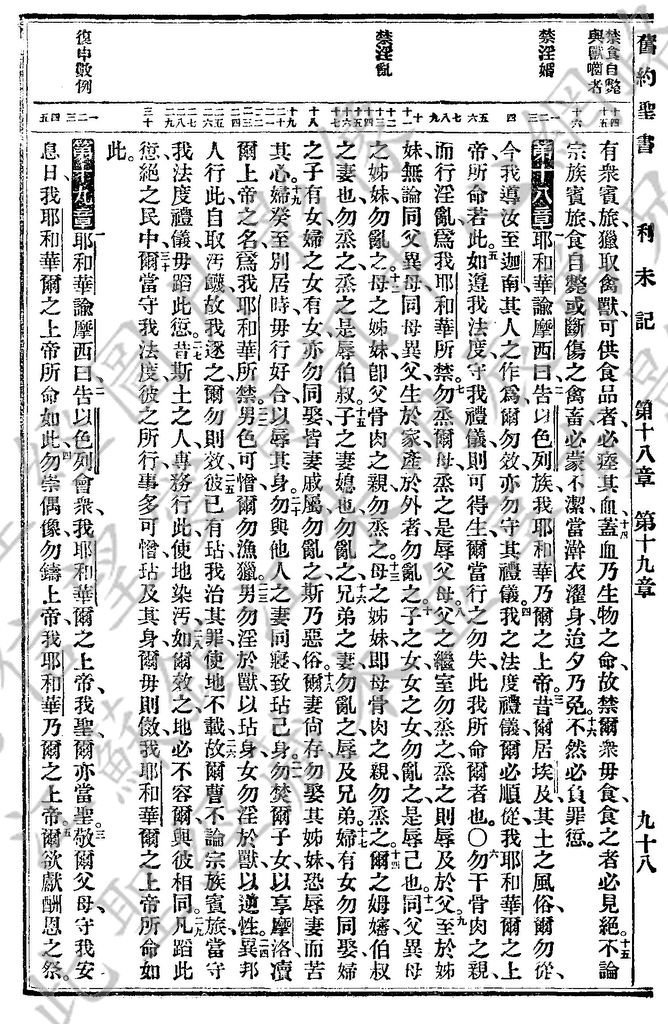 舊約聖書 利未記 第十八章 第十九章 九十八
禁食自斃
與獸嚙者
禁淫婚
禁淫亂
復申數例
有衆賓旅獵取禽獸可供食品者必瘞其血蓋血乃生物之命故禁爾衆毋食食之者必見絕不論
宗族賓旅食自斃或斷傷之禽畜必蒙不潔當澣衣濯身迨夕乃免不然必負罪愆。
第十八章 耶和華諭摩西曰告以色列族我耶和華乃爾之上帝昔爾居埃及其土之風俗爾勿從
今我導汝至迦南其人之作爲爾勿效亦勿守其禮儀我之法度禮儀爾必順從我耶和華爾之上
帝所命若此如遵我法度守我禮儀則可得生爾當行之勿失此我所命爾者也〇勿干骨肉之親
而行淫亂爲我耶和華所禁勿烝爾母烝之是辱父母父之繼室勿烝之烝之則辱及於父至於姊
妹無論同父異母同母異父生於家產於外者勿亂之子之女女之女勿亂之是辱己也同父異母
之姊妹勿亂之母之姊妹卽父骨肉之親勿烝之母之姊妹卽母骨肉之親勿烝之爾之姆嬸伯叔
之妻也勿烝之烝之是辱伯叔子之妻媳也勿亂之兄弟之妻勿亂之辱及兄弟婦有女勿同娶婦
之子有女婦之女有女亦勿同娶皆妻戚屬勿亂之斯乃惡俗爾妻尚存勿娶其姊妹恐辱妻而苦
其心婦癸至別居時毋行好合以辱其身勿與他人之妻同寢致玷己身勿焚爾子女以享摩洛瀆
爾上帝之名爲我耶和華所禁男色可憎爾勿漁獵男勿淫於獸以玷身女勿淫於獸以逆性異邦
人行此自取汚衊故我逐之爾勿則效彼已有玷我治其罪使地不載故爾曹不論宗族賓旅當守
我法度禮儀毋蹈此愆昔斯土之人專務行此使地染汚如爾效之地必不容爾與彼相同凡蹈此
愆絕之民中爾當守我法度彼之所行事多可憎玷及其身爾毋則傚我耶和華爾之上帝所命如
此。
第十九章 耶和華諭摩西曰告以色列會衆我耶和華爾之上帝我聖爾亦當聖敬爾父母守我安
息日我耶和華爾之上帝所命如此勿崇偶像勿鑄上帝我耶和華乃爾之上帝爾欲獻酬恩之祭